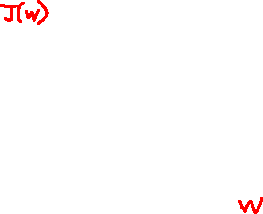 J(w)
w